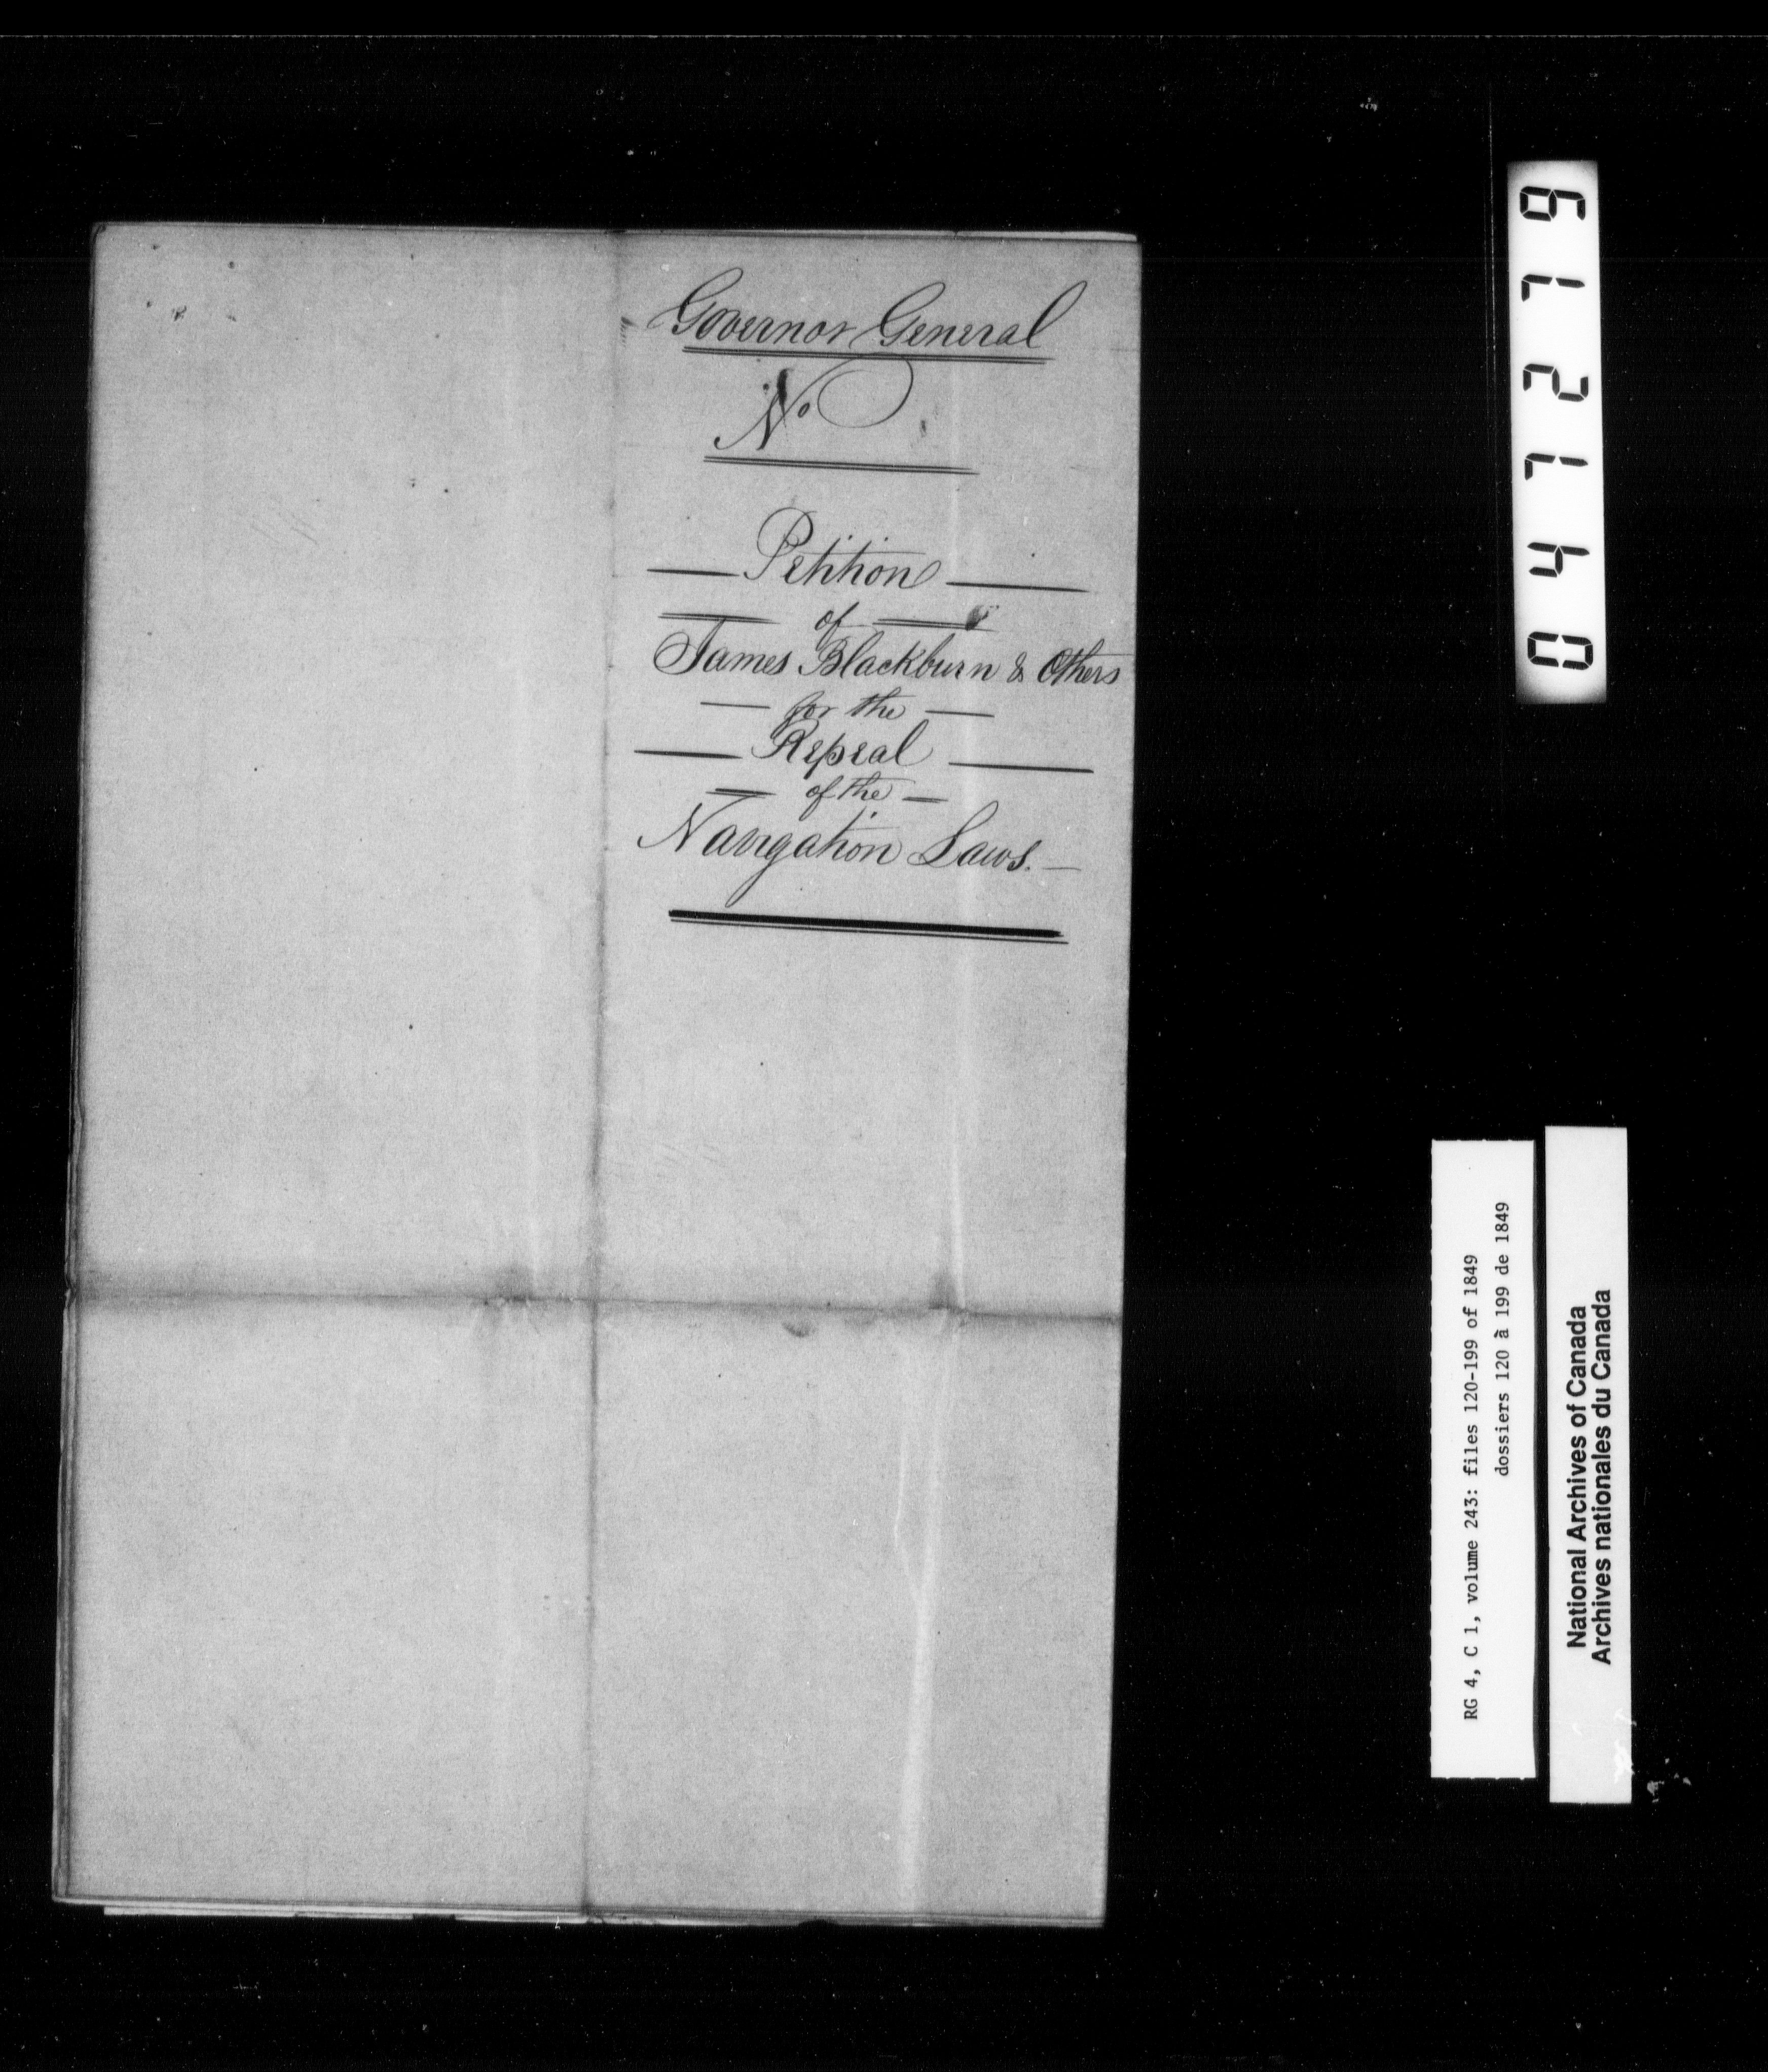 Governor General
No
Petition
of
James Blackburn & Others
for the
Repeal
of the
Navigation Laws.
047219
RG 4, C 1, volume 243: files 120-199 of 1849
dossiers 120 à 199 de 1849
National Archives of Canada
Archives nationales du Canada